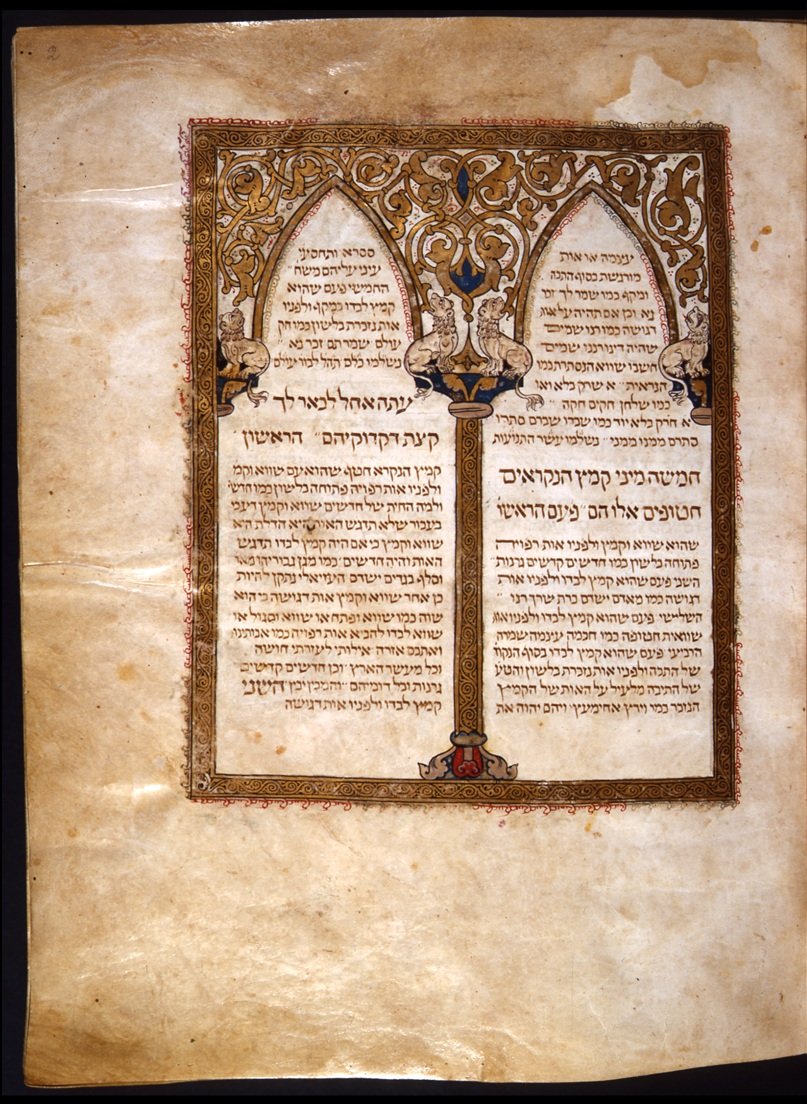 עינימה או אות
מודגשת בסוף התבה
ומיקף כמו שמר לך זבו
נא וכן אם תהיה על אות
דגושה כמו רנו שמים
שהיה דינו רננו שמים
חשבו שווא הנסתית כמו
הנראית א שרק בלא ואו
כמו שלחן חקים חקה
א חרק בלא יוד כמו שברו שברם סתרו
סתרם ממנו ממני נשלמו עשר התנועות
חמשה מיני קמץ הנקראים
חטופים אלו הם פעם הראשו
שהוא שווא וקמץ ולפניו אות רפויה
פתוחה בלשון כמו חדשים קדשים גרנות
השני פעם שהוא קמץ לבדו ולפניו אות
דגושה כמו מאדם ישדם כרת שרך רנו
השלישי פעם שהוא קמץ לבדו ולפניו אות
שוואית חטופה כמו חכמה עינימה שמרה
הרביעי פעם שהוא קמץ לבדו בסוף הנקוד
של התבה ולפניו אות נזכרת בלשון והטע
של התיבה מלעיל על האות של הקמץ
הנזכר כמו וירץ אחימעץ ויהם יהוה את
סיסרא ותחסעי
עיני עליהם משח
החמישי פעם שהוא
קמץ לבדו במקף ולפניו
אות נזכרת בלשון כמו חק
עולם שמרתם זכר נא
נשלמו כלם תהל לבור עולם
עתה אחל לבאר לך
קצת דקדוקיהם הראשון
קמץ הנקרא חטף שהוא עם שווא וקמ
ולפניו אות רפויה פתוחה בלשון כמו חדשי
ולמה החית של חדשים שווא וקמץ ויעבי
בעבור שלא תדגש האות היא הדלת היא
שווא וקמץ כי אם היה קמץ לבדו תדגש
האות והיה חדשים כמו מגן גבוריהו מאד
וסלף בגדים ישדם העזיאלי נתקן להיות
כן אחר שווא וקמץ אות דגושה כי הוא
שוה כמו שווא ופתח או שווא וסגול או
שווא לבדו להביא אות רפויה כמו אבותינו
ואתכם אזרה אילותי לעזרתי חושה
וכל מעשר הארץ וכן חדשים קדשים
גרנות וכל דומיהם והמבין יבין השני
קמץ לבדו ולפניו אות דגושה